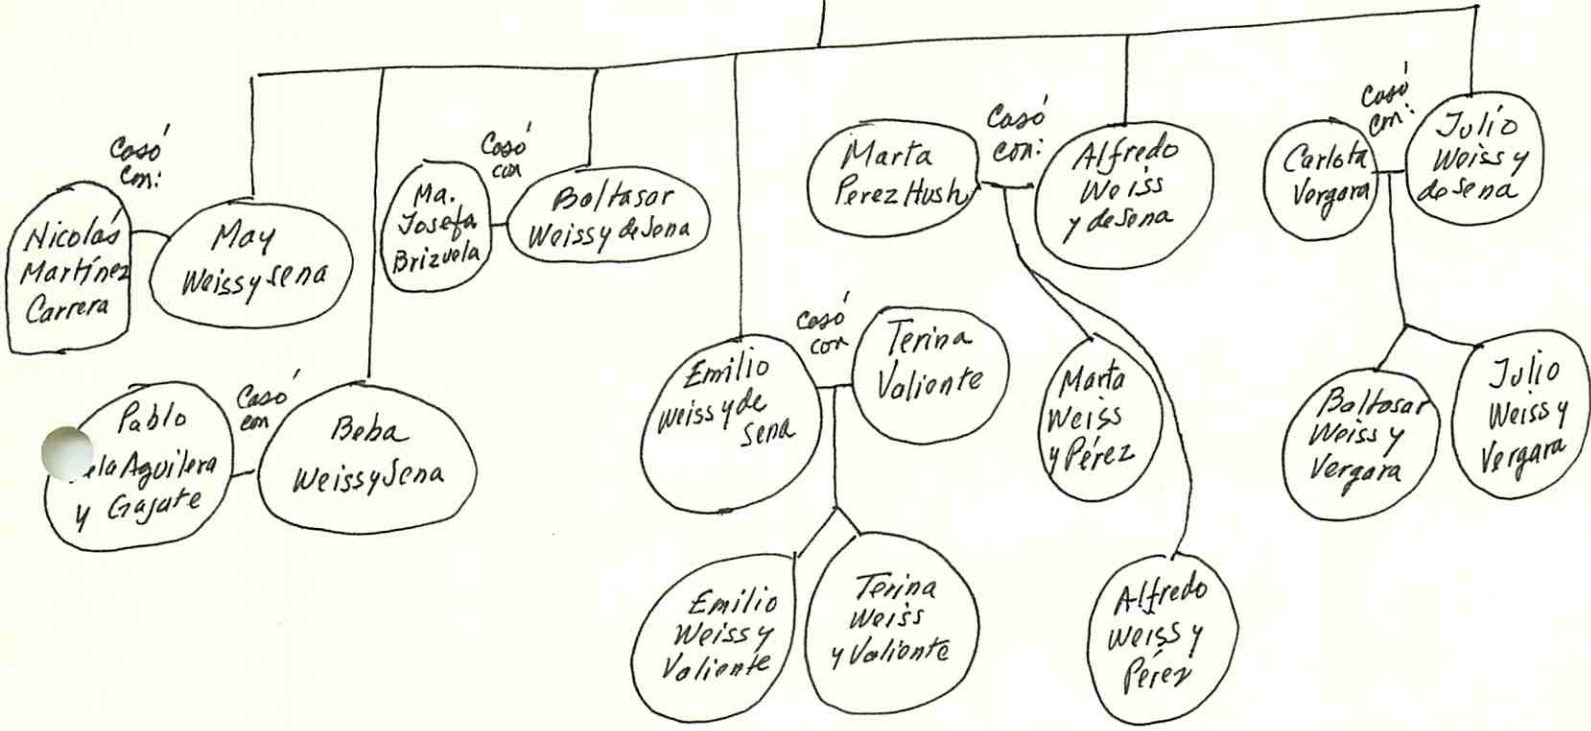 Casó
con:
Nicolás
Martínez
Carrera
May
Weiss y Sena
Casó
con
Ma.
Josefa
Brizuela
Baltasar
Weiss y de Sena
Marta
Perez Hush
Casó
con:
Alfredo
Weiss
y de Sena
Carlota
Vergara
Casó
con:
Julio
Weiss y
de Sena
Pablo
ela Aguilera
y Gajate
Casó
con
Beba
Weiss y Sena
Emilio
Weiss y de
Sena
Casó
con
Terina
Valiente
Marta
Weiss
y Pérez
Baltasar
Weiss y
Vergara
Julio
Weiss y
Vergara
Emilio
Weiss y
Valiente
Terina
Weiss
y Valiente
Alfredo
Weiss y
Pérez